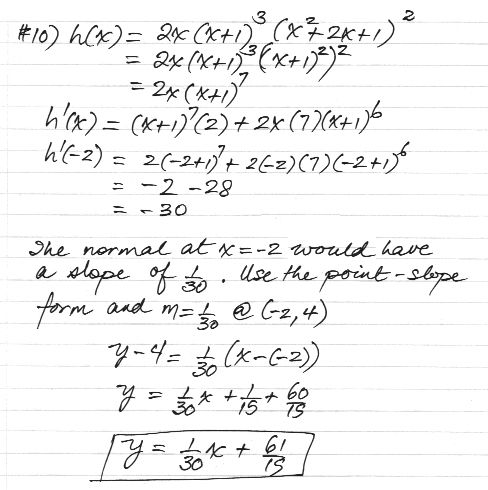 #10) h(x) = 2x(x+1)³(x²+2x+1)²
= 2x(x+1)³((x+1)²)²
= 2x(x+1)⁷
h'(x) = (x+1)⁷(2) + 2x(7)(x+1)⁶
h'(-2) = 2(-2+1)⁷ + 2(-2)(7)(-2+1)⁶
= -2 -28
= -30
The normal at x=-2 would have
a slope of 1/30. Use the point-slope
form and m=1/30 @ (-2,4)
y-4 = 1/30 (x-(-2))
y = 1/30 x + 1/15 + 60/15
y = 1/30 x + 61/15